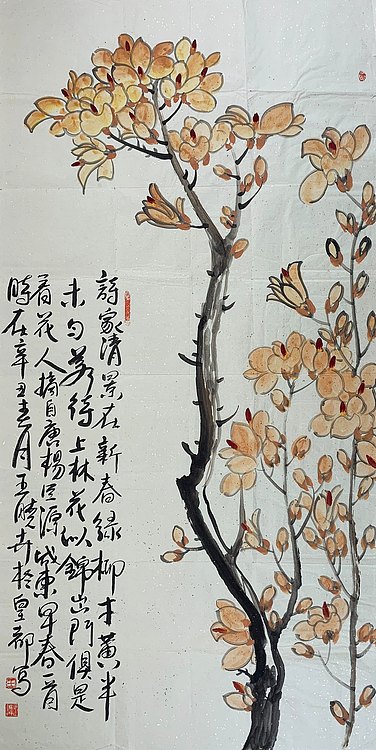 詩家清景在新春緑柳才黄半
未匀若待上林花似錦出门俱是
看花人摘自唐楊巨源城東早春一首
時在辛丑春月王曉卉於皇都寫